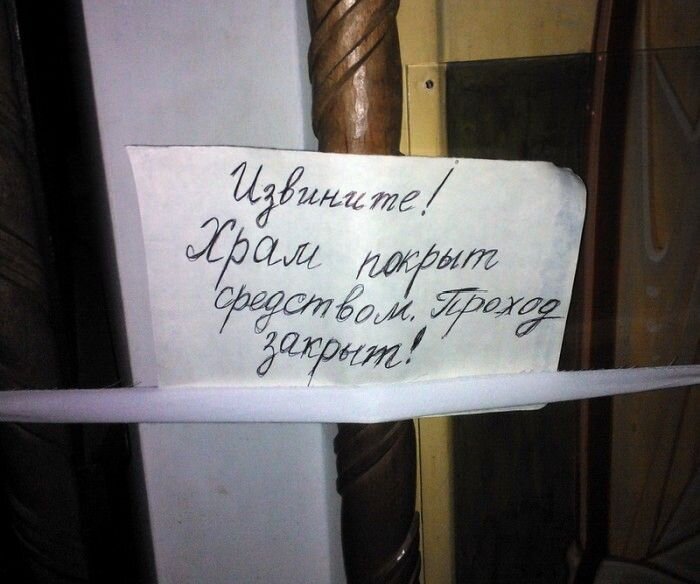 Извините!
Храм покрыт
средством. Проход
закрыт!